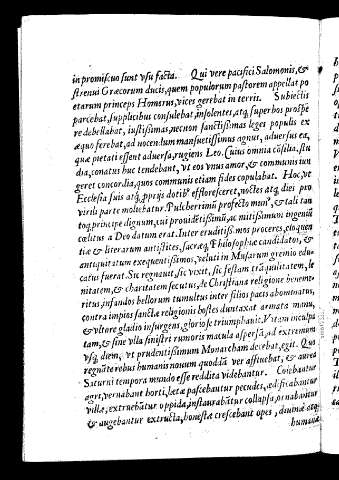 in promiscuo sunt vsu facta. Qui vere pacifici Salomonis, &
strenui Græcorum ducis, quem populorum pastorem appellat po
etarum princeps Homerus, vices gerebat in terris. Subiectis
parcebat, supplicibus consulebat, insolentes, atq; superbos prospe
re debellabat, iustissimas, necnon sanctissimas leges populis ex
æquo ferebat, ad nocendum mansuetissimus agnus, aduersus ea,
quæ pietati essent aduersa, rugiens Leo. Cuius omnia cōsilia, stu
dia, conatus huc tendebant, vt eos vnus amor, & communis iun
geret concordia, quos communis etiam fides copulabat. Hoc, vt
Ecclesia suis atq; pprijs dotib⁹ effloresceret, noctes atq; dies pro
virili parte moliebatur. Pulcherrimū profecto munꝰ, & tali tan
toq; principe dignum, cui prouidētissimū, ac mitissimum ingeniū
cœlitus a Deo datum erat. Inter eruditissimos proceres, eloquen
tiæ & literarum antistites, sacræq; Philosophiæ candidatos, &
antiquitatum exequentissimos, veluti in Musarum gremio edu-
catus fuerat. Sic regnauit, sic vixit, sic festam trāquilitatem, le
nitatem, & charitatem secutus, de Christiana religione beneme-
ritus, infandos bellorum tumultus inter filios pacis abominatus,
contra impios sanctæ religionis hostes duntaxat armata manu,
& vltore gladio insurgens, gloriose triumphauit. Vitam inculpa
tam, & sine vlla sinistri rumoris macula aspersā, ad extremum
vsq; diem, vt prudentissimum Monarcham decebat, egit. Quo
regnāte rebus humanis nouum quoddā ver affluebat, & aurea
Saturni tempora mundo esse reddita videbantur. Colebantur
agri, vernabant horti, lætæ pascebantur pecudes, ædificabantur
villæ, extruebātur oppida, instaurabātur collapsa, ornabantur
& augebantur extructa, honestæ crescebant opes, diuinæ atq;
humanæ